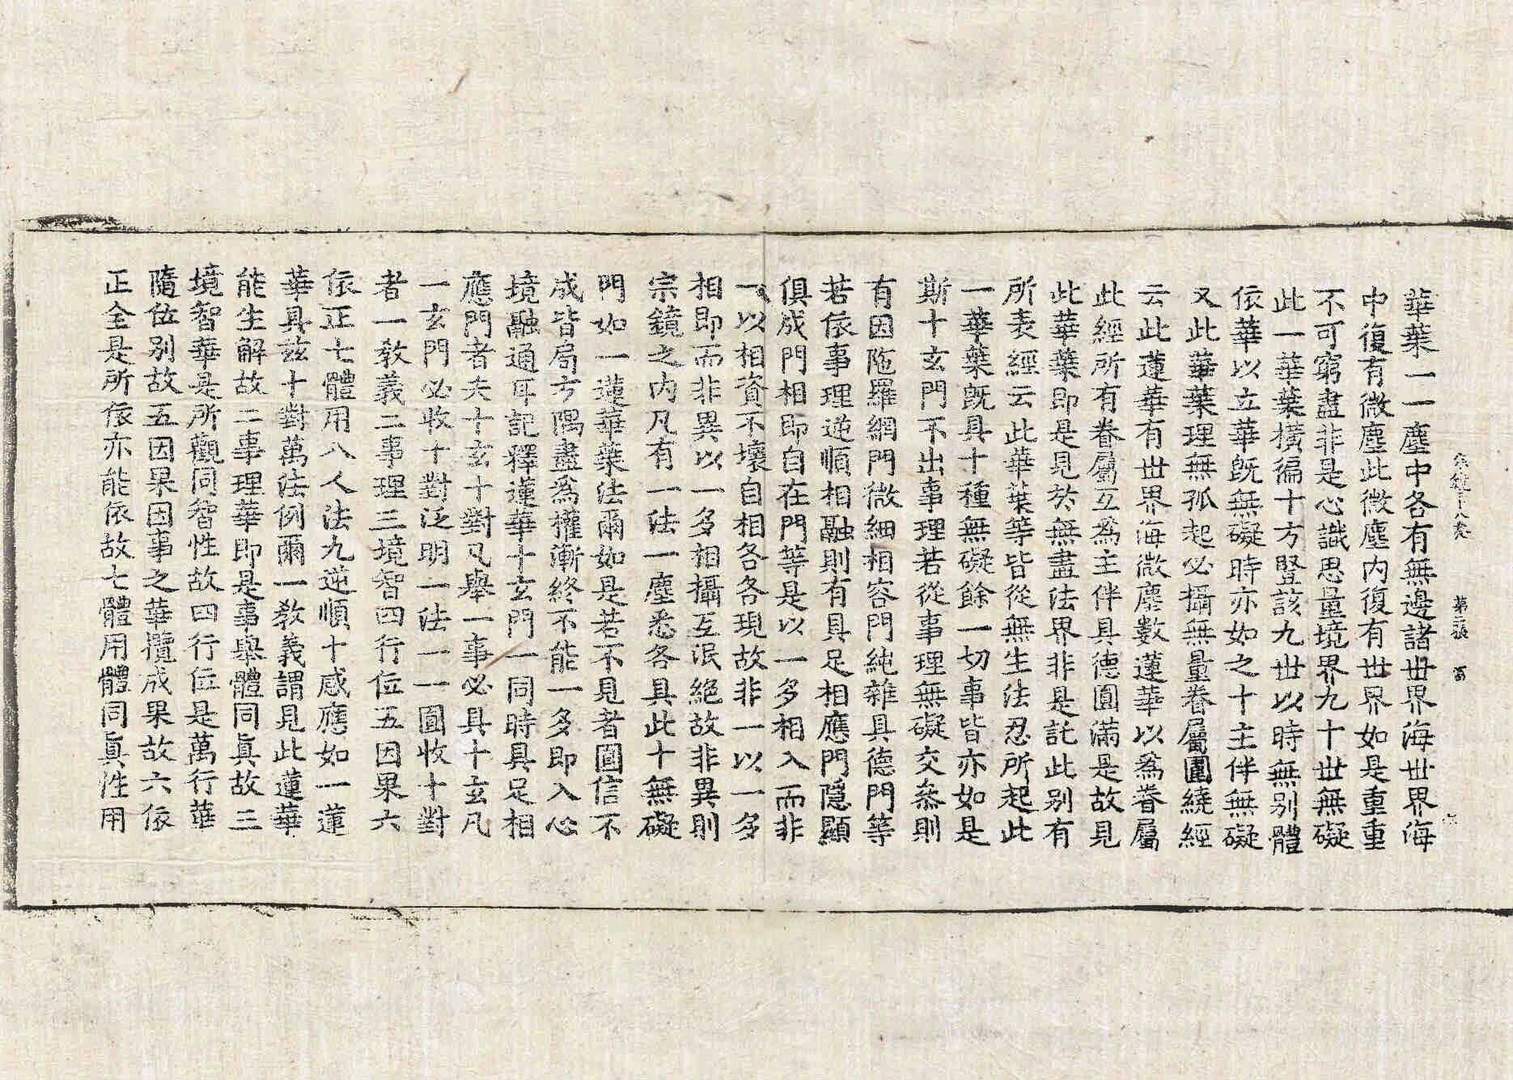 宗鏡二十八卷　第三張　富
華葉一一塵中各有無邊諸世界海世界海
中復有微塵此微塵內復有世界如是重重
不可窮盡非是心識思量境界九十世無礙
此一華葉橫徧十方豎該九世以時無別體
依華以立華旣無礙時亦如之十主伴無礙
又此華葉理無孤起必攝無量眷屬圍繞經
云此蓮華有世界海微塵數蓮華以爲眷屬
此經所有眷屬互爲主伴具德圓滿是故見
此華葉即是見於無盡法界非是託此別有
所表經云此華葉等皆從無生法忍所起此
一華葉旣具十種無礙餘一切事皆亦如是
斯十玄門不出事理若從事理無礙交叅則
有因陁羅網門微細相容門純雜具德門等
若依事理逆順相融則有具足相應門隱顯
俱成門相即自在門等是以一多相入而非
一以相資不壞自相各各現故非一以一多
相即而非異以一多相攝互泯絕故非異則
宗鏡之內凡有一法一塵悉各具此十無礙
門如一蓮華葉法爾如是若不見者圓信不
成皆局方隅盡爲權漸終不能一多即入心
境融通耳記釋蓮華十玄門一同時具足相
應門者夫十玄十對凡舉一事必具十玄凡
一玄門必收十對泛明一法一一圓收十對
者一教義二事理三境智四行位五因果六
依正七體用八人法九逆順十感應如一蓮
華具玆十對萬法例爾一教義謂見此蓮華
能生解故二事理華即是事舉體同眞故三
境智華是所觀同智性故四行位是萬行華
隨位別故五因果因事之華攬成果故六依
正全是所依亦能依故七體用體同眞性用